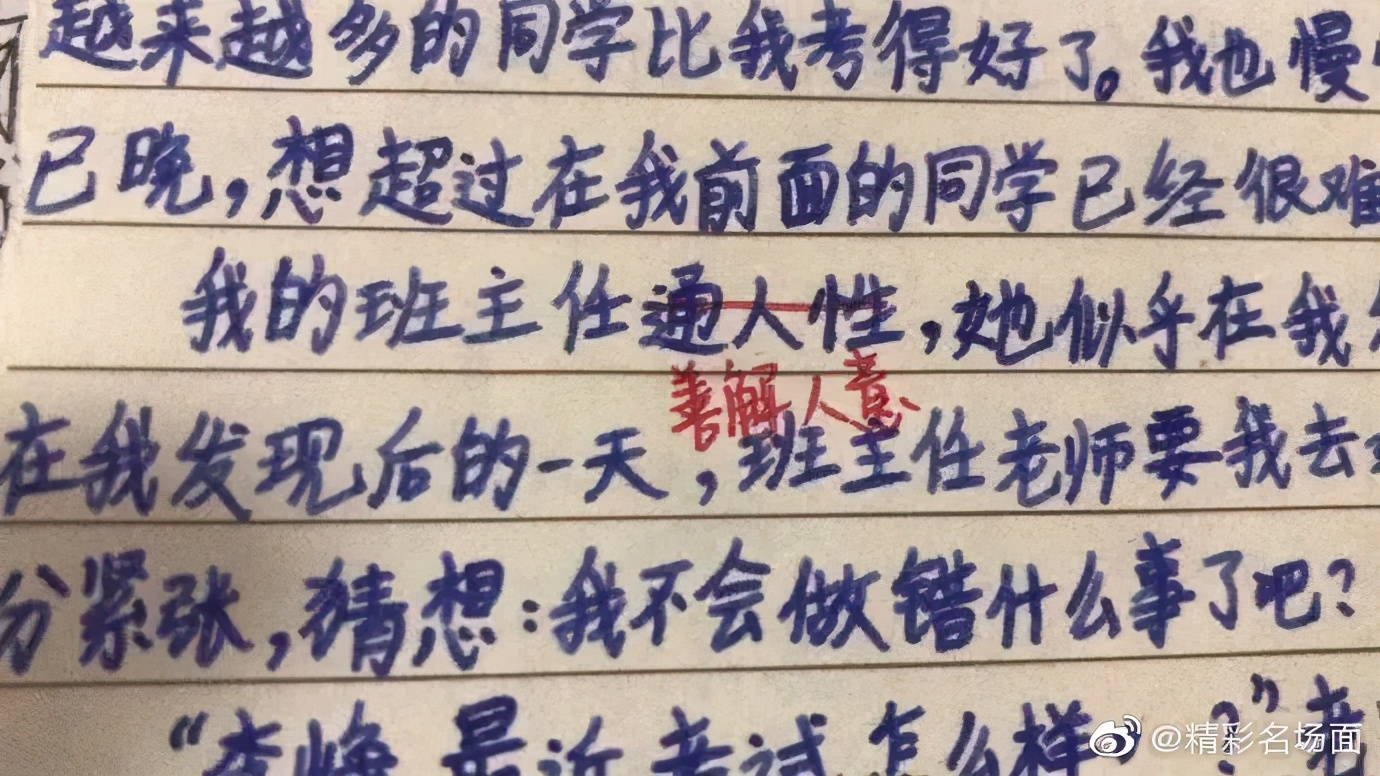 越来越多的同学比我考得好了。我也慢
已晚，想超过在我前面的同学已经很难
我的班主任通人性，她似乎在我
善解人意
在我发现后的一天，班主任老师要我去
分紧张，猜想：我不会做错什么事了吧？
“李峰最近考试怎么样？”老
@精彩名场面